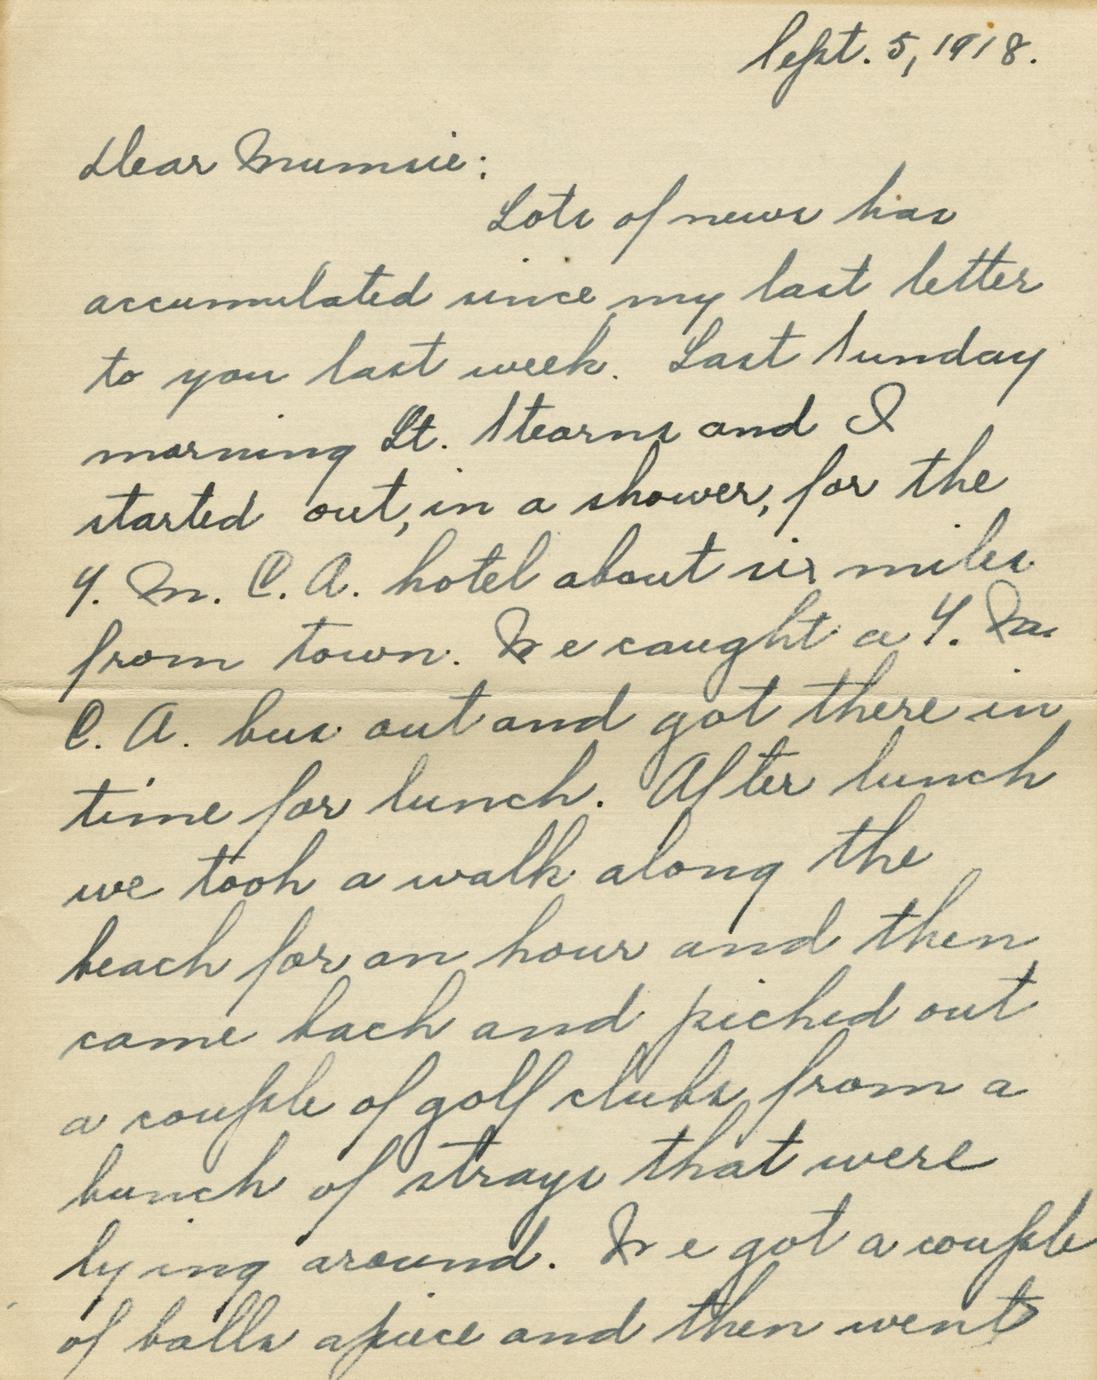 Sept. 5, 1918.
Dear Mumsie:
Lots of news has
accumulated since my last letter
to you last week. Last Sunday
morning Lt. Stearns and I
started out, in a shower, for the
Y. M. C. A. hotel about six miles
from town. We caught a Y. M.
C. A. bus out and got there in
time for lunch. After lunch
we took a walk along the
beach for an hour and then
came back and picked out
a couple of golf clubs from a
bunch of strays that were
lying around. We got a couple
of balls apiece and then went